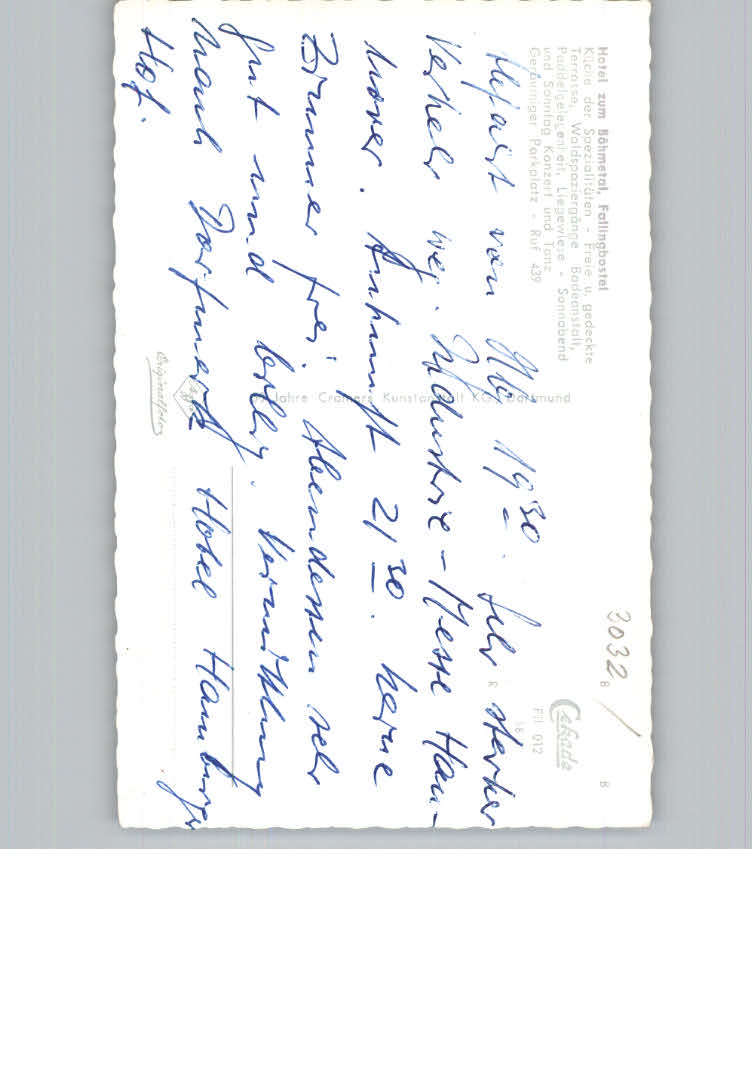 Hotel zum Böhmetal, Fallingbostel
Küche der Spezialitäten - Freie u. gedeckte
Terrasse, Waldspaziergänge Badeanstalt,
Paddelgelegenheit, Liegewiese - Sonnabend
und Sonntag Konzert und Tanz
Geräumiger Parkplatz - Ruf 439
3032
B B
Cekade
Fll 012
R
Jahre Cramers Kunstanstalt KG, Dortmund
Originalfoto
Abfahrt von 19³⁰. Sehr starker
Verkehr weg. Industrie-Messe Han-
nover. Ankunft 21³⁰. Keine
Zimmer frei. Abendessen sehr
gut und billig. Vermittlung
nach Dorfmark Hotel Hamburger
Hof.